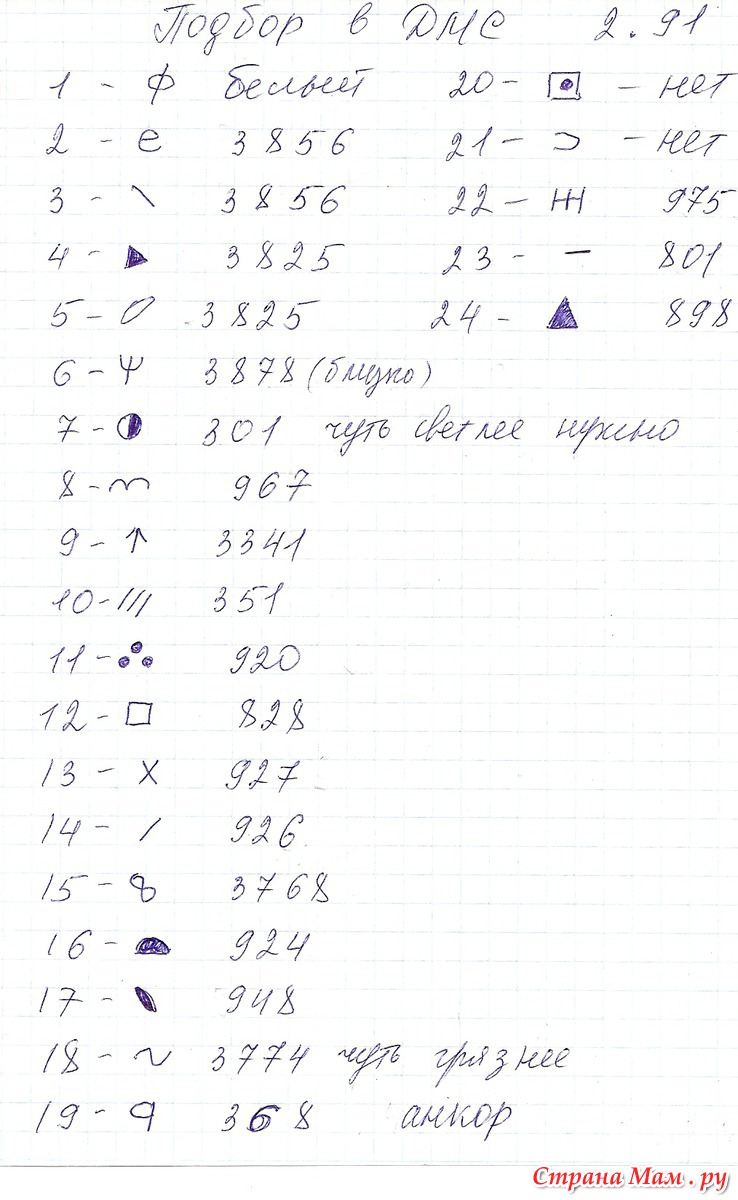 Подбор в ДМС 2.91
1 - ф белый
2 - е 3856
3 - \ 3856
4 - ▶ 3825
5 - 0 3825
6 - Ψ 3878 (близко)
7 - ◑ 301 чуть светлее нужно
8 - ⌒⌒ 967
9 - ↑ 3341
10 - /// 351
11 - ∴ 920
12 - □ 828
13 - X 927
14 - / 926
15 - 8 3768
16 - ◓ 924
17 - ⬮ 948
18 - ~ 3774 чуть грязнее
19 - q 368 анкор
20 - ▣ - нет
21 - ⊃ - нет
22 - ӾӀ 975
23 - — 801
24 - ▲ 898
Страна Мам.ру